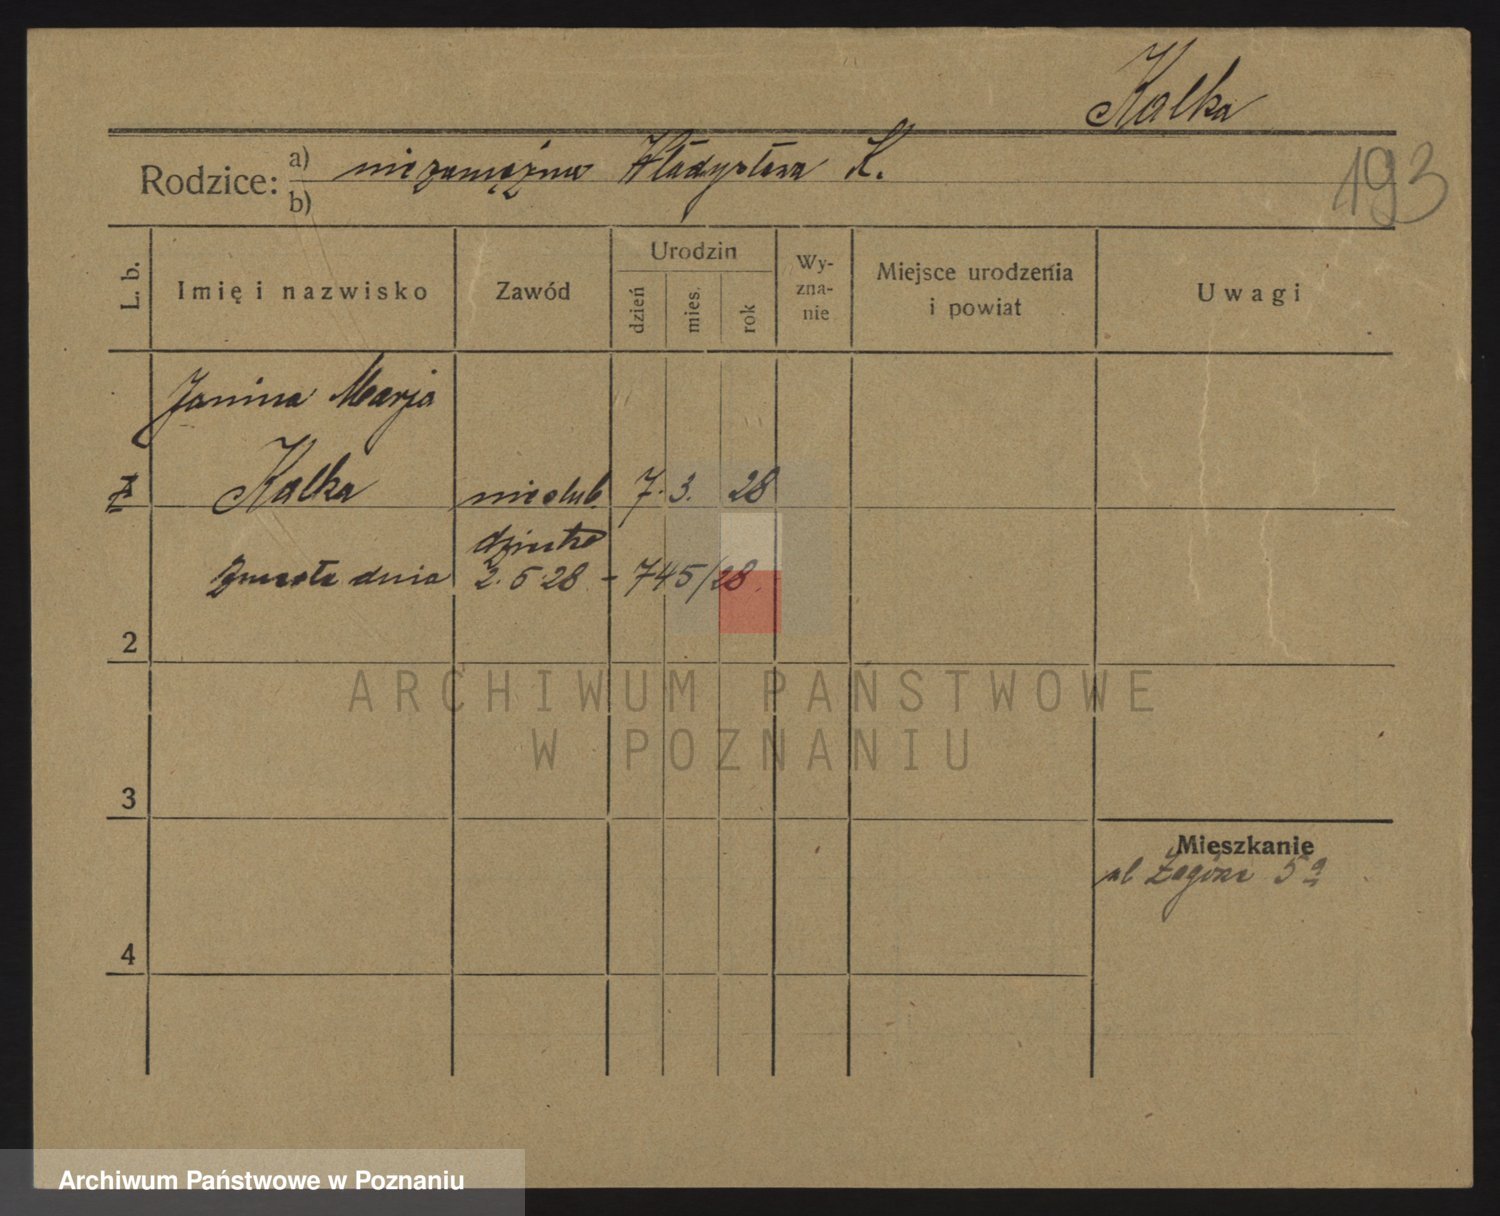 Kalka
193
Rodzice: a) niezamężna Władysława K.
b)
L. b.
Imię i nazwisko
Zawód
Urodzin
dzień
mies.
rok
Wy-
zna-
nie
Miejsce urodzenia
i powiat
Uwagi
Janina Marja
Kalka nieślub. 7. 3. 28
dziecko
Zmarła dnia 2.5.28 - 745/28.
2
3
Mieszkanie
ul Zagórze 5a
4
ARCHIWUM PAŃSTWOWE
W POZNANIU
Archiwum Państwowe w Poznaniu